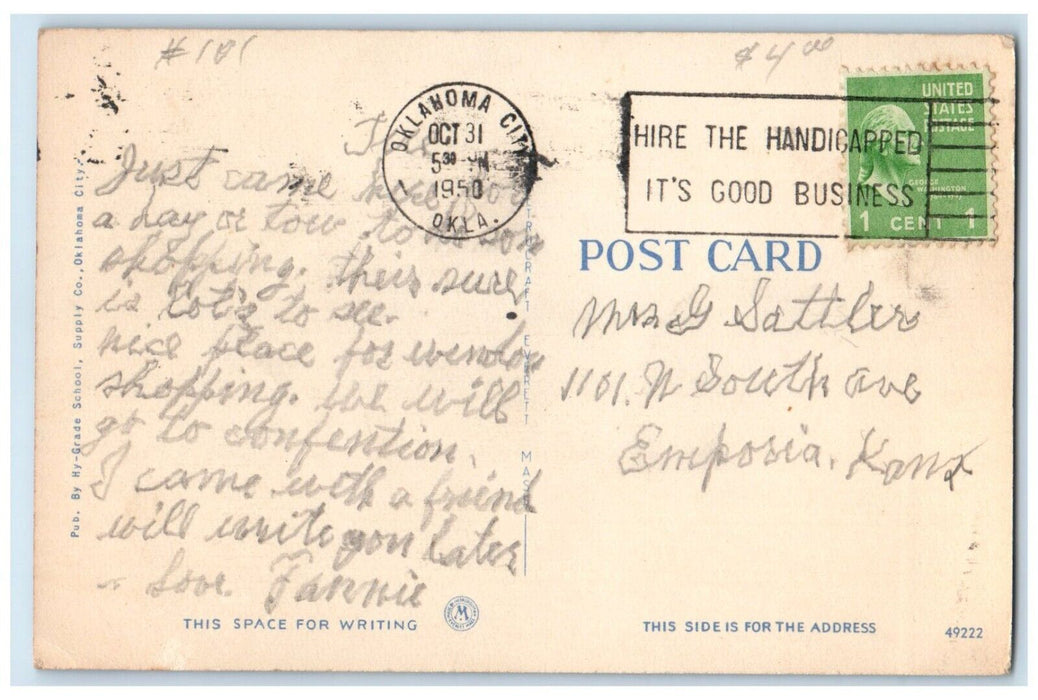 #101
$4.00
OKLAHOMA CITY
OCT 31
5 30 PM
1950
OKLA.
HIRE THE HANDICAPPED
IT'S GOOD BUSINESS
UNITED
STATES
POSTAGE
GEORGE
WASHINGTON
1 CENT 1
Just came here for
a day or tow to do som
shopping. this sure
is lots to see.
nice place for window
shopping. we will
go to confention.
I came with a friend
will write you later
Love. Fannie
POST CARD
Mrs G Sattler
1101. N South ave
Emporia. Kans
Pub. By Hy-Grade School, Supply Co., Oklahoma City.
EVERETT MASS
THIS SPACE FOR WRITING
M
THIS SIDE IS FOR THE ADDRESS
49222